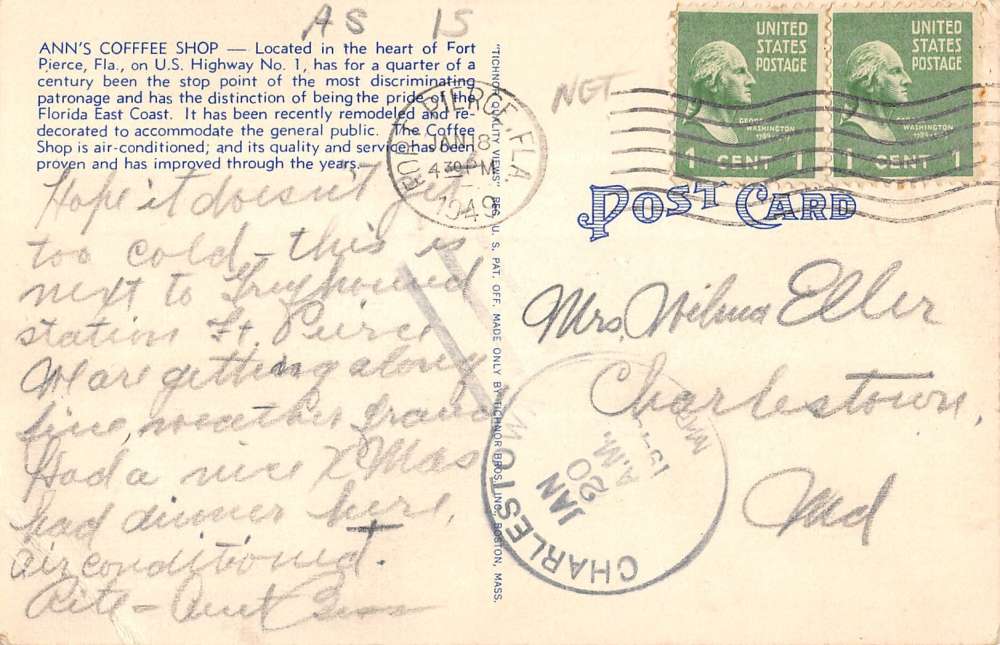 AS 15
ANN'S COFFFEE SHOP — Located in the heart of Fort
Pierce, Fla., on U.S. Highway No. 1, has for a quarter of a
century been the stop point of the most discriminating
patronage and has the distinction of being the pride of the
Florida East Coast. It has been recently remodeled and re-
decorated to accommodate the general public. The Coffee
Shop is air-conditioned; and its quality and service has been
proven and has improved through the years.
Hope it doesn't get
too cold - this is
next to Greyhound
station Ft. Pierce
We are getting along
fine, weather grand
Had a nice X Mas
had dinner here,
air conditioned.
Rite - Aunt
"TICHNOR QUALITY VIEWS" REG. U. S. PAT. OFF. MADE ONLY BY TICHNOR BROS. INC., BOSTON, MASS.
FORT PIERCE, FLA.
JAN 18
4 30 PM
1949
NGT
UNITED
STATES
POSTAGE
GEORGE
WASHINGTON
1789-
1 CENT 1
UNITED
STATES
POSTAGE
GEORGE
WASHINGTON
1789-
1 CENT 1
POST CARD
Mrs. Wilma Eller
Charlestown,
Md
CHARLESTOWN
JAN
20
A.M.